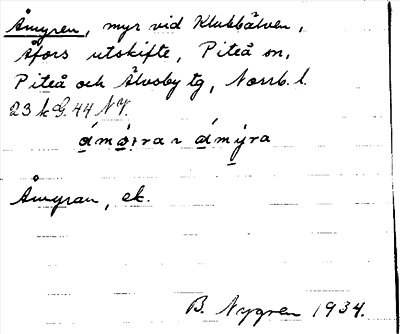 Åmyren, myr vid Klubbälven,
Åfors utskifte, Piteå sn,
Piteå och Älvsby tg, Norrb. l.
23 k G. 44 NV.
Åmyran, ek.
B. Nygren 1934.